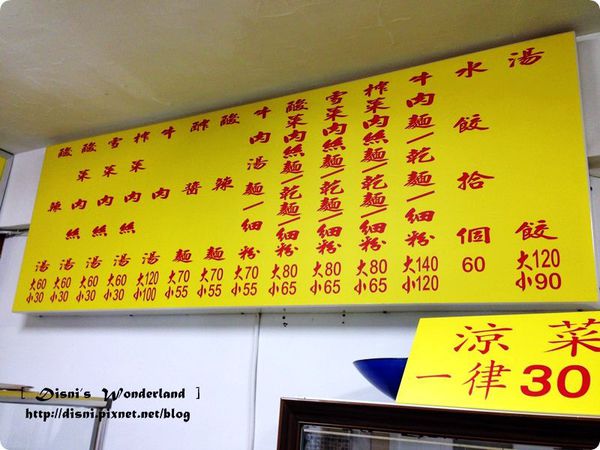 湯餃 大120 小90
水餃拾個 60
牛肉麵/乾麵/細粉 大140 小120
榨菜肉絲麵/乾麵/細粉 大80 小65
雪菜肉絲麵/乾麵/細粉 大80 小65
酸菜肉絲麵/乾麵/細粉 大80 小65
牛肉湯麵/細粉 大70 小55
酸辣麵 大70 小55
酢醬麵 大70 小55
牛肉湯 大120 小100
榨菜肉絲湯 大60 小30
雪菜肉絲湯 大60 小30
酸菜肉絲湯 大60 小30
酸辣湯 大60 小30
涼菜
一律30
[ Disni's Wonderland ]
http://disni.pixnet.net/blog